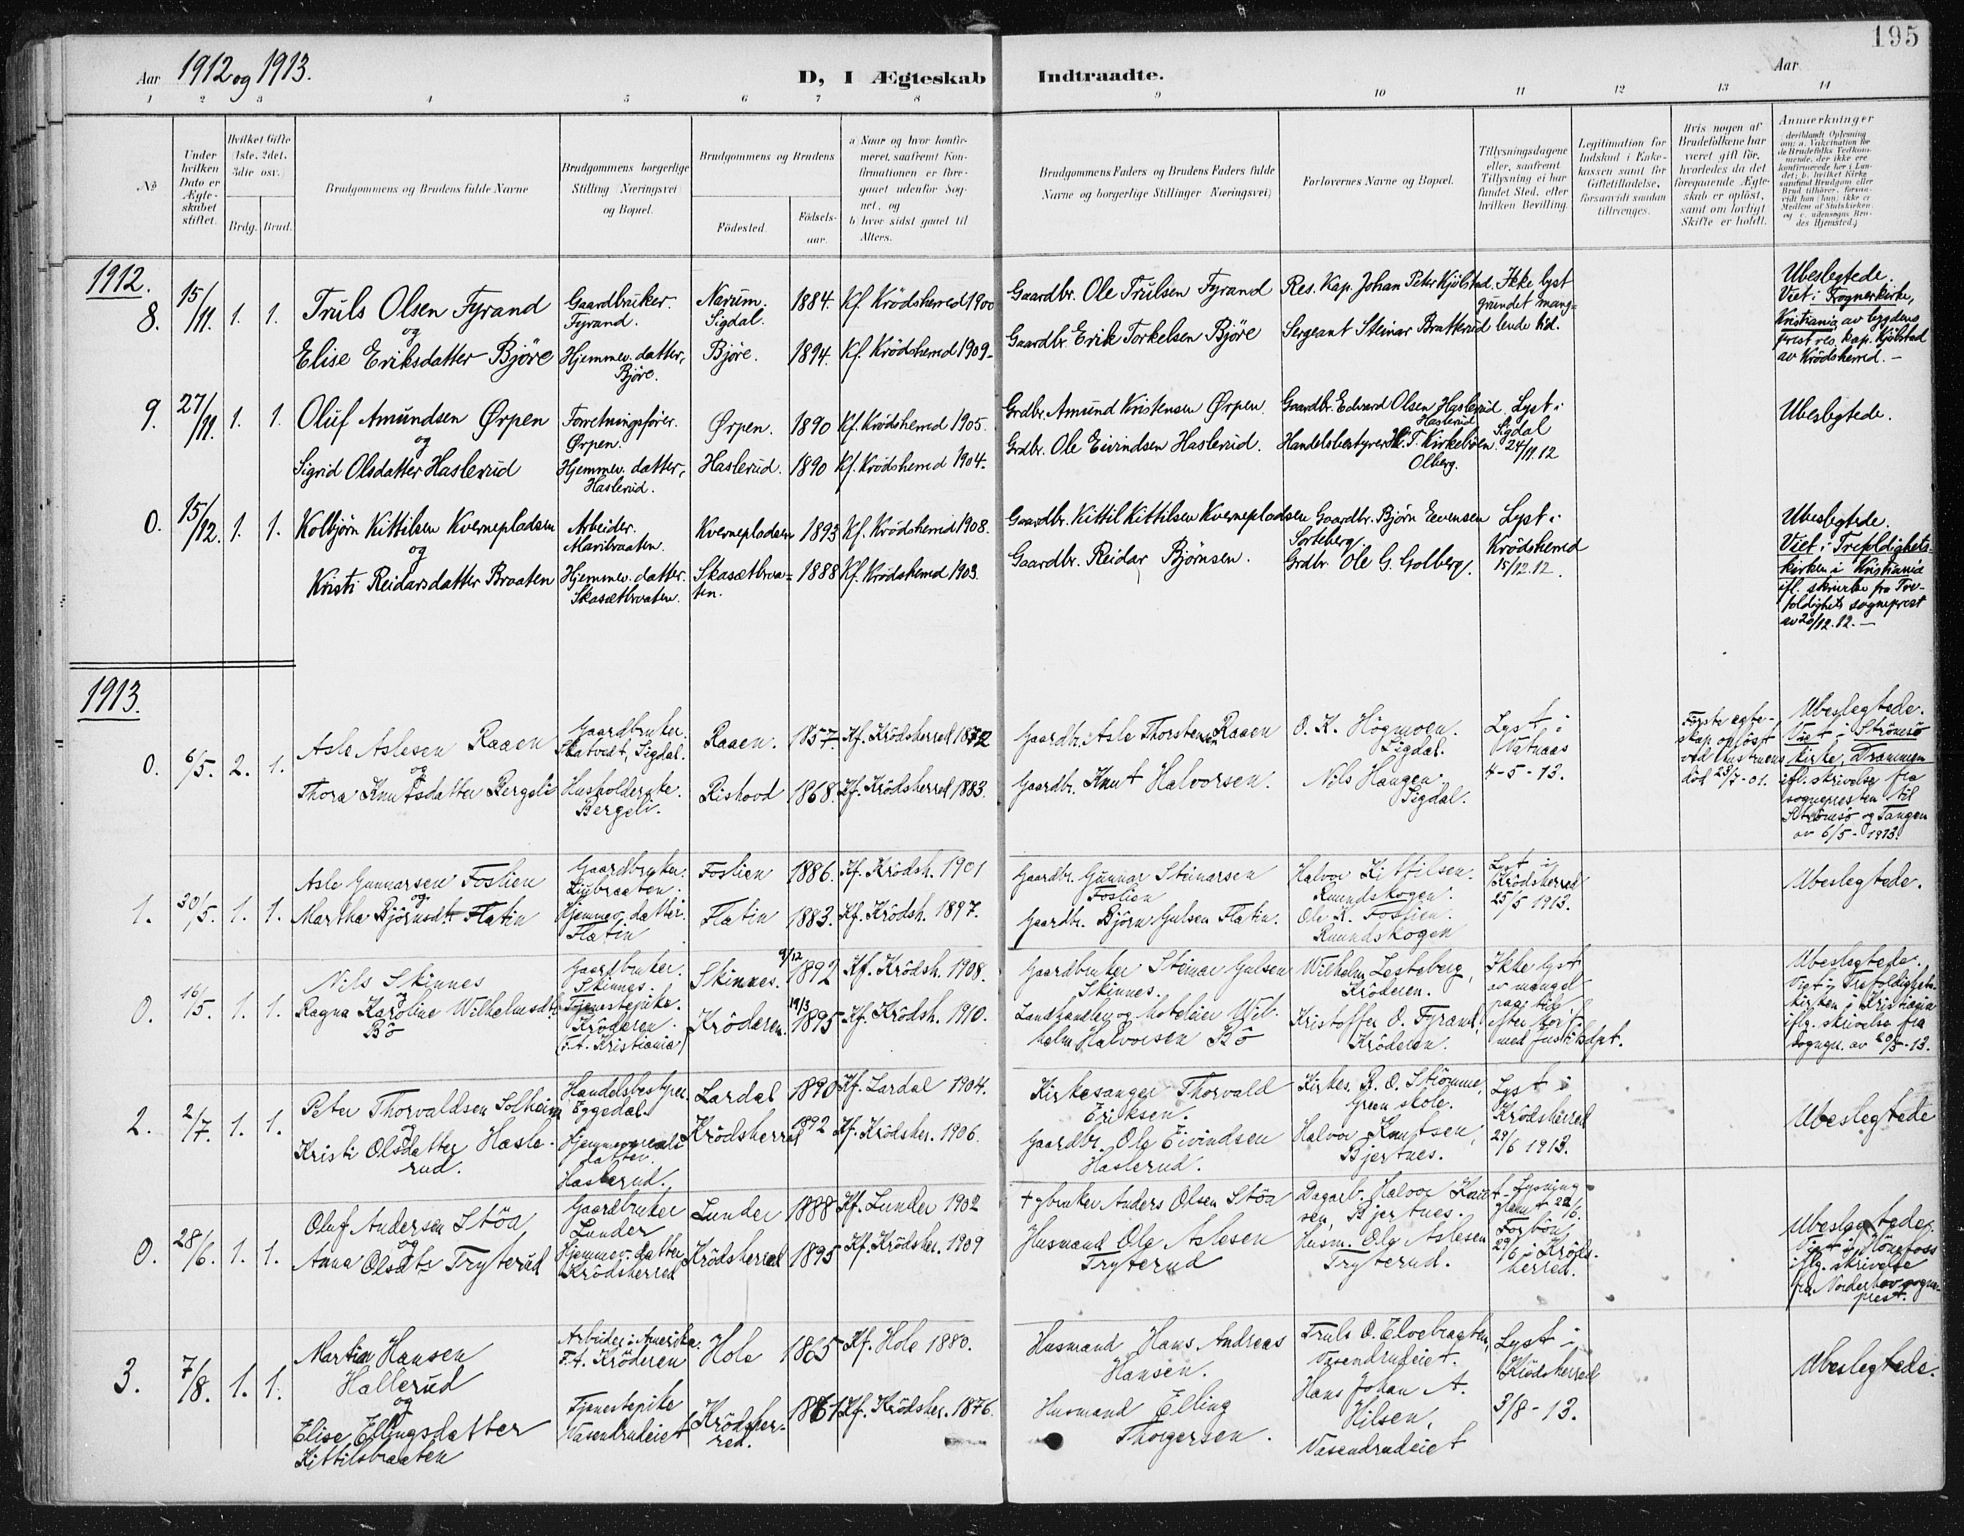 195
Aar 1912 og 1913.
D, I Ægteskab Indtraadte.
Aar
1 2 3 4 5 6 7 8 9 10 11 12 13 14
No
Under hvilken Dato er Ægteskabet stiftet.
Hvilket Gifte (1ste, 2det, 3die osv.)
Brdg. Brud.
Brudgommens og Brudens fulde Navne
Brudgommens borgerlige Stilling (Næringsvei) og Bopæl.
Brudgommens og Brudens
Födested.
Födselsaar.
a) Naar og hvor konfirmeret, saafremt Konfirmationen er foregaaet udenfor Sognet, og
b) hvor sidst gaaet til Alters.
Brudgommens Faders og Brudens Faders fulde Navne og borgerlige Stillinger (Næringsvei)
Forlovernes Navne og Bopæl.
Tillysningsdagene eller, saafremt Tillysning ei har fundet Sted, efter hvilken Bevilling.
Legitimation for Indskud i Enkekassen samt for Giftetilladelse, forsaavidt saadan tiltrænges.
Hvis nogen af Brudefolkene har været gift för, hvorledes da det foregaaende Ægteskab er oplöst, samt om lovligt Skifte er holdt.
Anmærkninger
1912.
8. 15/11. 1. 1. Truls Olsen Fyrand
og
Elise Eriksdatter Björe
Gaardbruker. Fyrand.
Hjemmev. datter, Björe.
Narum. Sigdal. 1884. Kf. Krödsherred 1900
Björe. 1894. Kf. Krödsherred 1909-
Gaardbr. Ole Trulsen Fyrand
Gaardbr. Erik Torkelsen Björe
Res. Kap. Johan Peter Kjölstad.
Sergeant Steinar Bratterud
Ikke lyst grundet manglende tid.
Ubeslegtede.
Viet i Frognerkirke, Kristiania av bygdens prest res. kap. Kjölstad av Krödsherred. -
9. 27/11. 1. 1. Oluf Amundsen Ørpen
og
Sigrid Olsdatter Haslerud
Forretningsförer. Ørpen.
Hjemmev. datter, Haslerud.
Ørpen. 1890 Kf. Krödsherred 1905.
Haslerud. 1890 Kf. Krödsherred 1904.
Grdbr. Amund Kristensen Ørpen.
Grdbr. Ole Eivindsen Haslerud.
Gaardbr. Edvard Olsen Haslerud. Haslerud
Handelsbestyrer H. T. Kirkebøen. Olberg.
Lyst i Sigdal 24/11.12
Ubeslegtede.
0. 15/12. 1. 1. Kolbjörn Kittilsen Kvernepladsen
og
Kristi Reidarsdatter Braaten
Arbeider.
Hjemmev. datter. Skasætbraaten.
Kvernepladsen 1893 Kf. Krödsherred 1908.
Skasætbraaten. 1888 Kf. Krödsherred 1903.
Gaardbr. Kittil Kittilsen Kvernepladsen
Gaardbr. Reidar Bjørnsen.
Gaardbr. Bjørn Evensen Sorteberg.
Grdbr. Ole G. Golberg.
Lyst i Krödsherred 15/12.12.
Ubeslegtede.
Viet i Trefoldighetskirken i Kristiania ifl. skrivelse fra Trefoldighets sogneprest av 20/12.12. -
1913.
0. 6/5. 2. 1. Asle Aslesen Raaen
og
Thora Knutsdatter Bergeli
Gaardbruker. Skatvedt, Sigdal.
Husholderske. Bergeli.
Raaen. 1857. Kf. Krödsherred 1872
Rishovd 1868. Kf. Krödsherred 1883.
Gaardbr. Asle Thorstensen Raaen
Gaardbr. Knut Halvorsen.
O. K. Högmoen. Sigdal.
Nils Haugen. Sigdal.
Lyst i Vatnaas 4-5-13.
Förste egteskap oplöst ved hustruens död 23/7-01.
Ubeslegtede.
Viet i Strömsö kirke, Drammen iflg. skrivelse fra sognepresten til Strömsö og Tangen av 6/5-1913.
1. 30/5. 1. 1. Asle Gunnarsen Foslien
og
Martha Björnsdtr Flatin
Gaardbruker.
Hjemmev. datter. Flatin
Foslien 1886. Kf. Krödsh. 1901
Flatin 1883. Kf. Krödsh. 1897.
Gaardbr. Gunnar Steinarsen Foslien
Gaardbr. Björn Gulsen Flatin.
Halvor Kittilsen. Ruundskogen.
Ole K. Foslien. Ruundskogen
Lyst i Krödsherred 25/5 1913.
Ubeslegtede.
0. 16/5. 1. 1. Nils Skinnes
og
Ragna Karoline Wilhelmsdtr Bö
Gaardbruker. Skinnes.
Tjenestepike. Kröderen. (F.t. Kristiania)
Skinnes. 9/12 1892 Kf. Krödsh. 1908.
Kröderen. 19/3 1895 Kf. Krödsh. 1910.
Gaardbruker Steinar Gulsen Skinnes.
Landhandler og hotelier Wilhelm Halvorsen Bö
Wilhelm Lesteberg, Kröderen.
Kristoffer O. Fyrand, Kröderen.
Ikke lyst av mangel paa tid
Ubeslegtede.
Viet i Trefoldighetskirken i Kristiania iflg. skrivelse fra sognepr. av 20/5-13.
2. 2/7. 1. 1. Peter Thorvaldsen Solheim
og
Kristi Olsdatter Haslerud.
Handelsbestyrer Eggedal.
Hjemmeværende datter. Haslerud.
Lardal 1890 Kf. Lardal 1904.
Krödsherred 1892 Kf. Krödsher. 1906.
Kirkesanger Thorvald Eriksen.
Gaardbr. Ole Eivindsen Haslerud.
Kirkes. R. O. Strömme, Green skole.
Halvor Knutsen, Bjertnes.
Lyst i Krödsherred 29/6 1913.
Ubeslegtede
0. 28/6. 1. 1. Oluf Andersen Stöa
og
Anna Olsdtr Tryterud
Gaardbruker Lunder
Hjemmev. datter Krödsherred
Lunder 1888 Kf. Lunder 1902
Krödsherred 1895 Kf. Krödsher. 1909
bruker Anders Olsen Stöa
Husmand Ole Aslesen Tryterud
Dagarb. Halvor Knutsen, Bjertnes.
Husm. Ole Aslesen Tryterud.
Lysning glemt 22/6. Forbön 29/6 i Krödsherred.
Ubeslegtede.
Viet i Hönefoss iflg. skrivelse fra Norderhov sogneprest.
3. 7/8. 1. 1. Martin Hansen Hallerud
og
Elise Ellingsdatter Kittilsbraaten
Arbeider i Amerika. F.t. Kröderen
Tjenestepike Vasendrudeiet
Hole 1865 Kf. Hole 1880.
Krödsherred. 1861 Kf. Krödsher. 1876.
Husmand Hans Andreas Hansen.
Husmand Elling Thorgersen.
Truls O. Elvebraaten, Vasendrudeiet.
Hans Johan A. Nilsen, Vasendrudeiet
Lyst i Krödsherred 3/8-13.
Ubeslegtede.